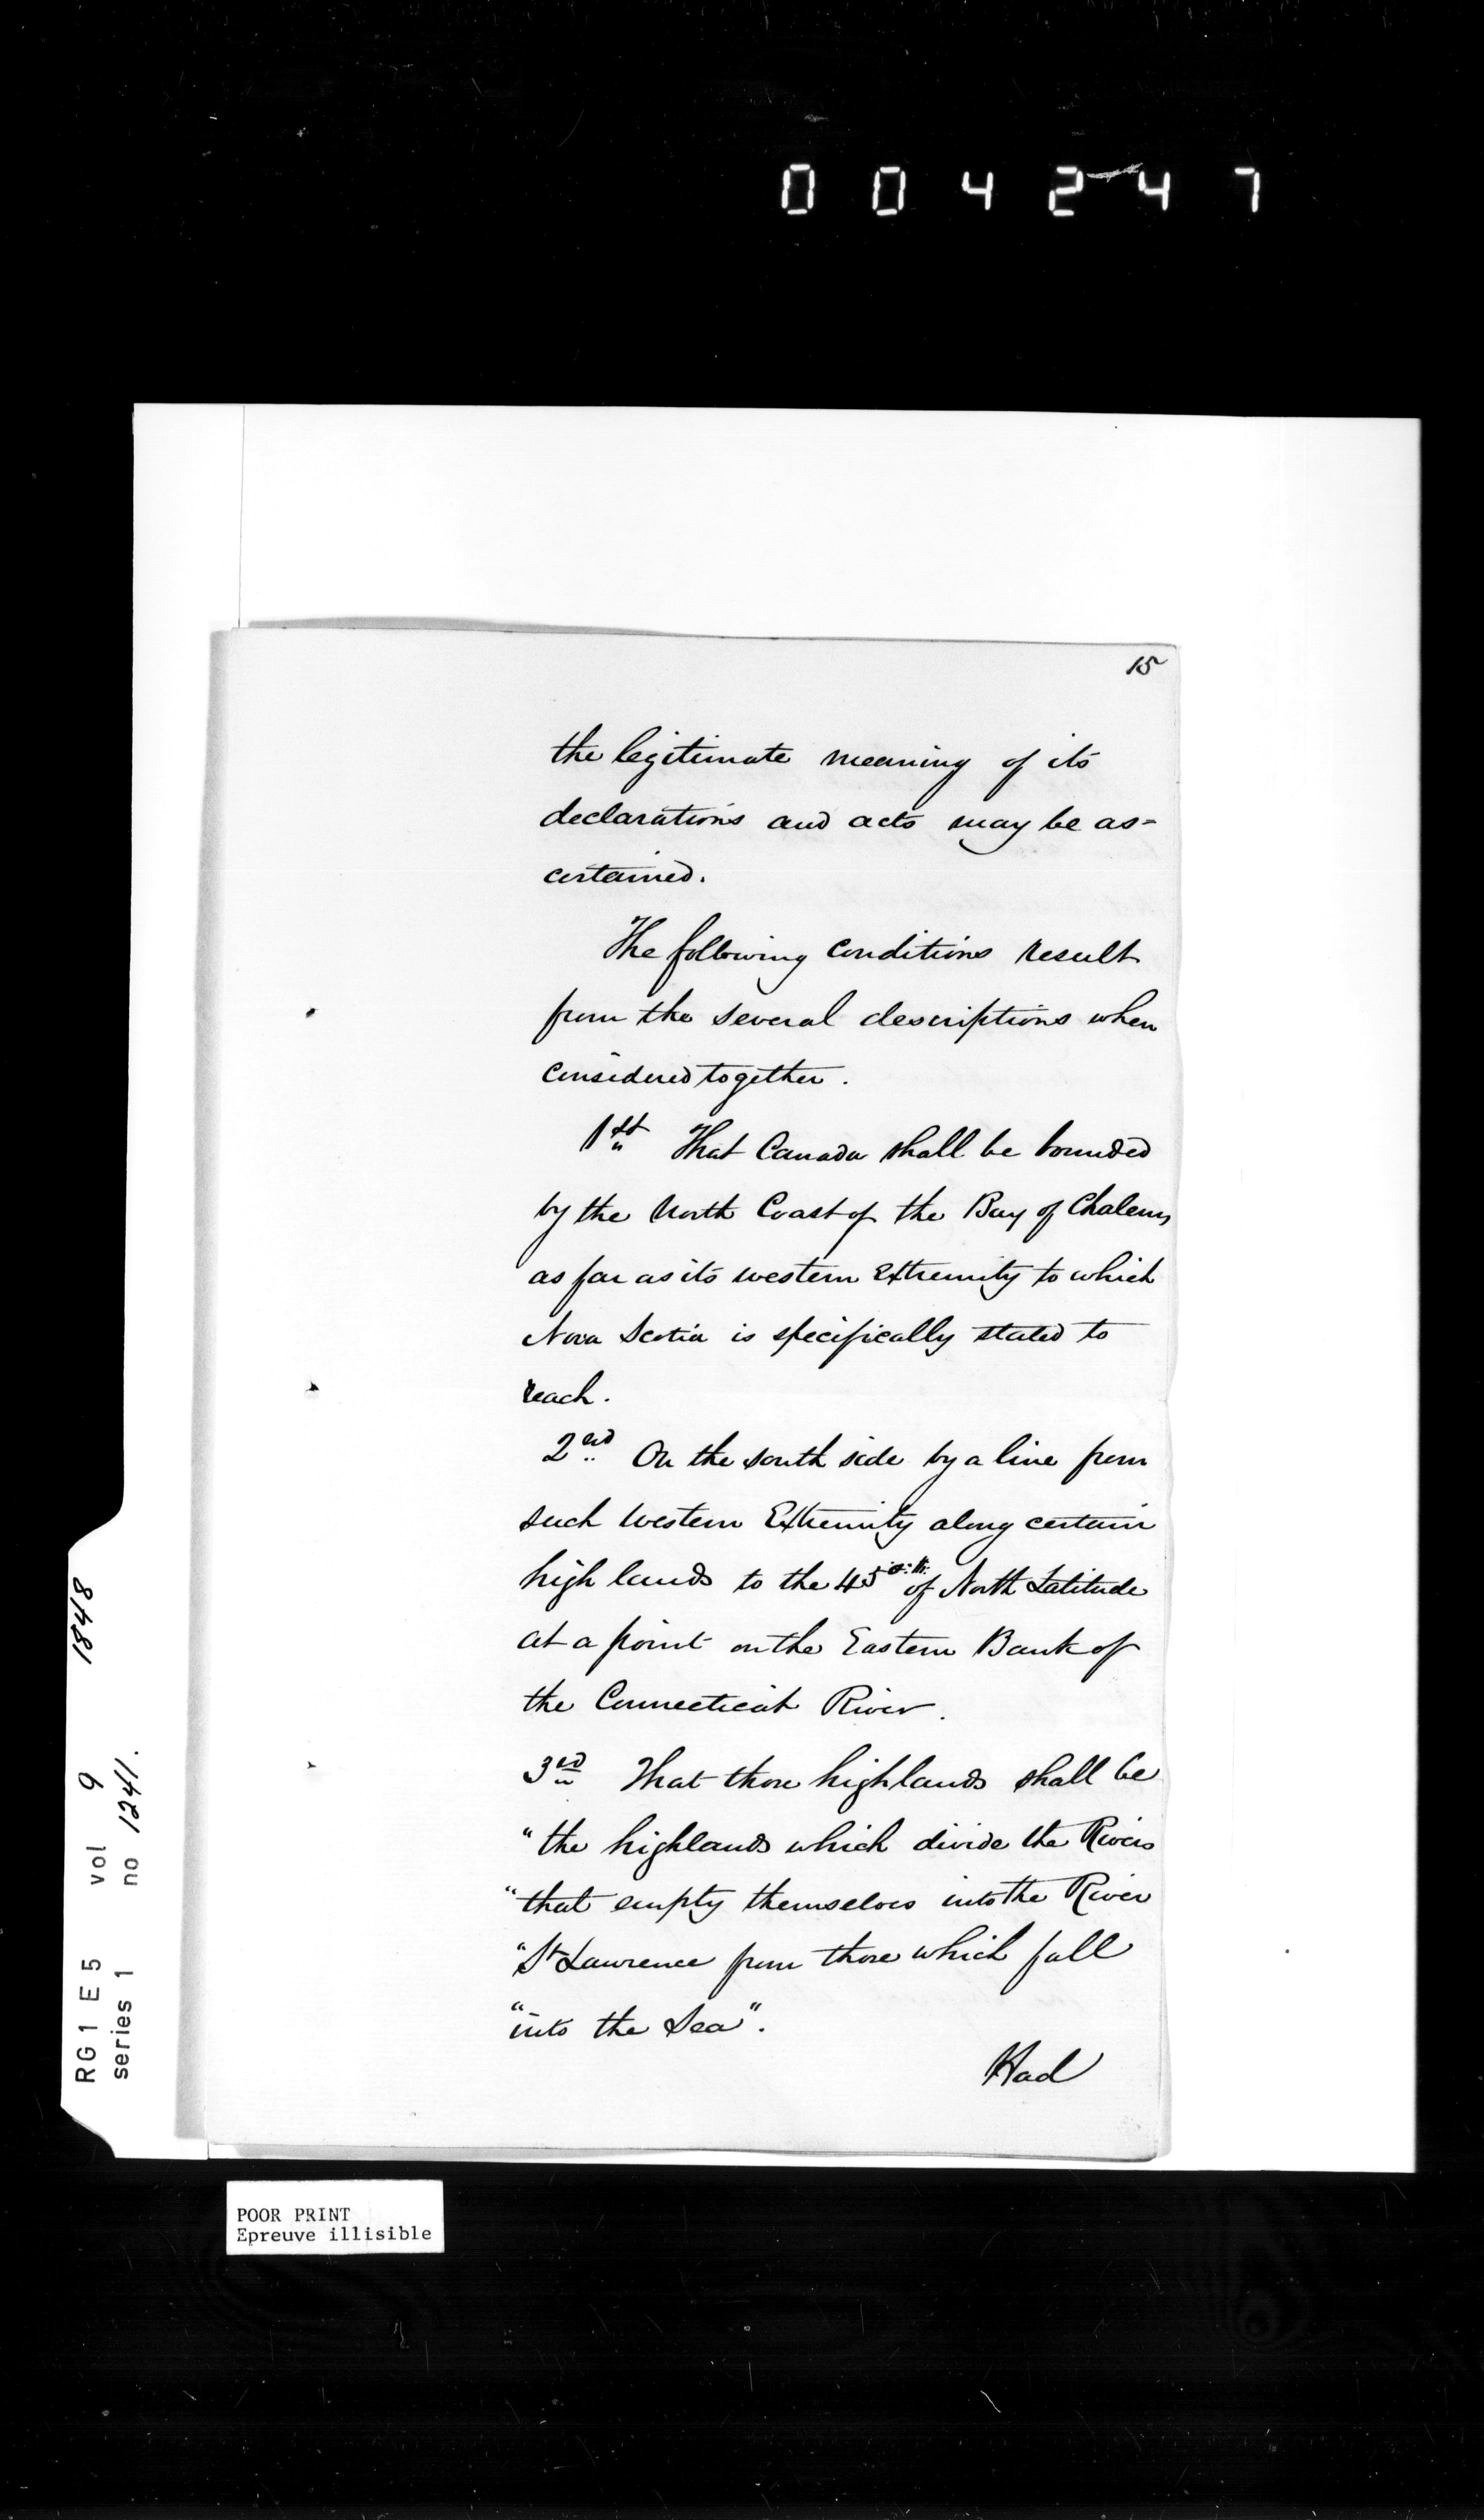 004247
15
the legitimate meaning of its
declarations and acts may be as=
certained.
The following conditions result
from the several descriptions when
considered together.
1st That Canada shall be bounded
by the North Coast of the Bay of Chaleurs
as far as its western Extremity to which
Nova Scotia is specifically stated to
reach.
2nd On the south side by a line from
such western Extremity along certain
high lands to the 45th of North Latitude
at a point on the Eastern Bank of
the Connecticut River.
3rd That those highlands shall be
"the highlands which divide the Rivers
"that empty themselves into the River
"St Lawrence from those which fall
"into the Sea".
Had
RG 1 E 5 vol 9 1848
series 1 no 1241.
POOR PRINT
Epreuve illisible